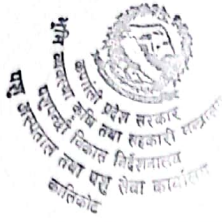 कर्णाली प्रदेश सरकार
भूमि व्यवस्था, कृषि तथा सहकारी मन्त्रालय
पशुपन्छी विकास निर्देशनालय
पशु अस्पताल तथा पशु सेवा कार्यालय
कालिकोट